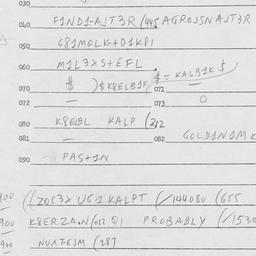 030
040 F1ND1-AJT3R (445 AGROJSNAJT3R
050 G81MOLK+D1K81
060 M1L3XS+EFL
070 $ )$K8ELB1K $=KALB1K $ 071
072 — 073 O
080 K8EIBL KALP (212
081 — 082 GOLD1N1MK
090 PAS+1N
900 ((20C3X UG1KALPT (/144080 (655
900 K8ERZA.N/022 81 PROBABLY (/1530
900 NUXTEJM (287